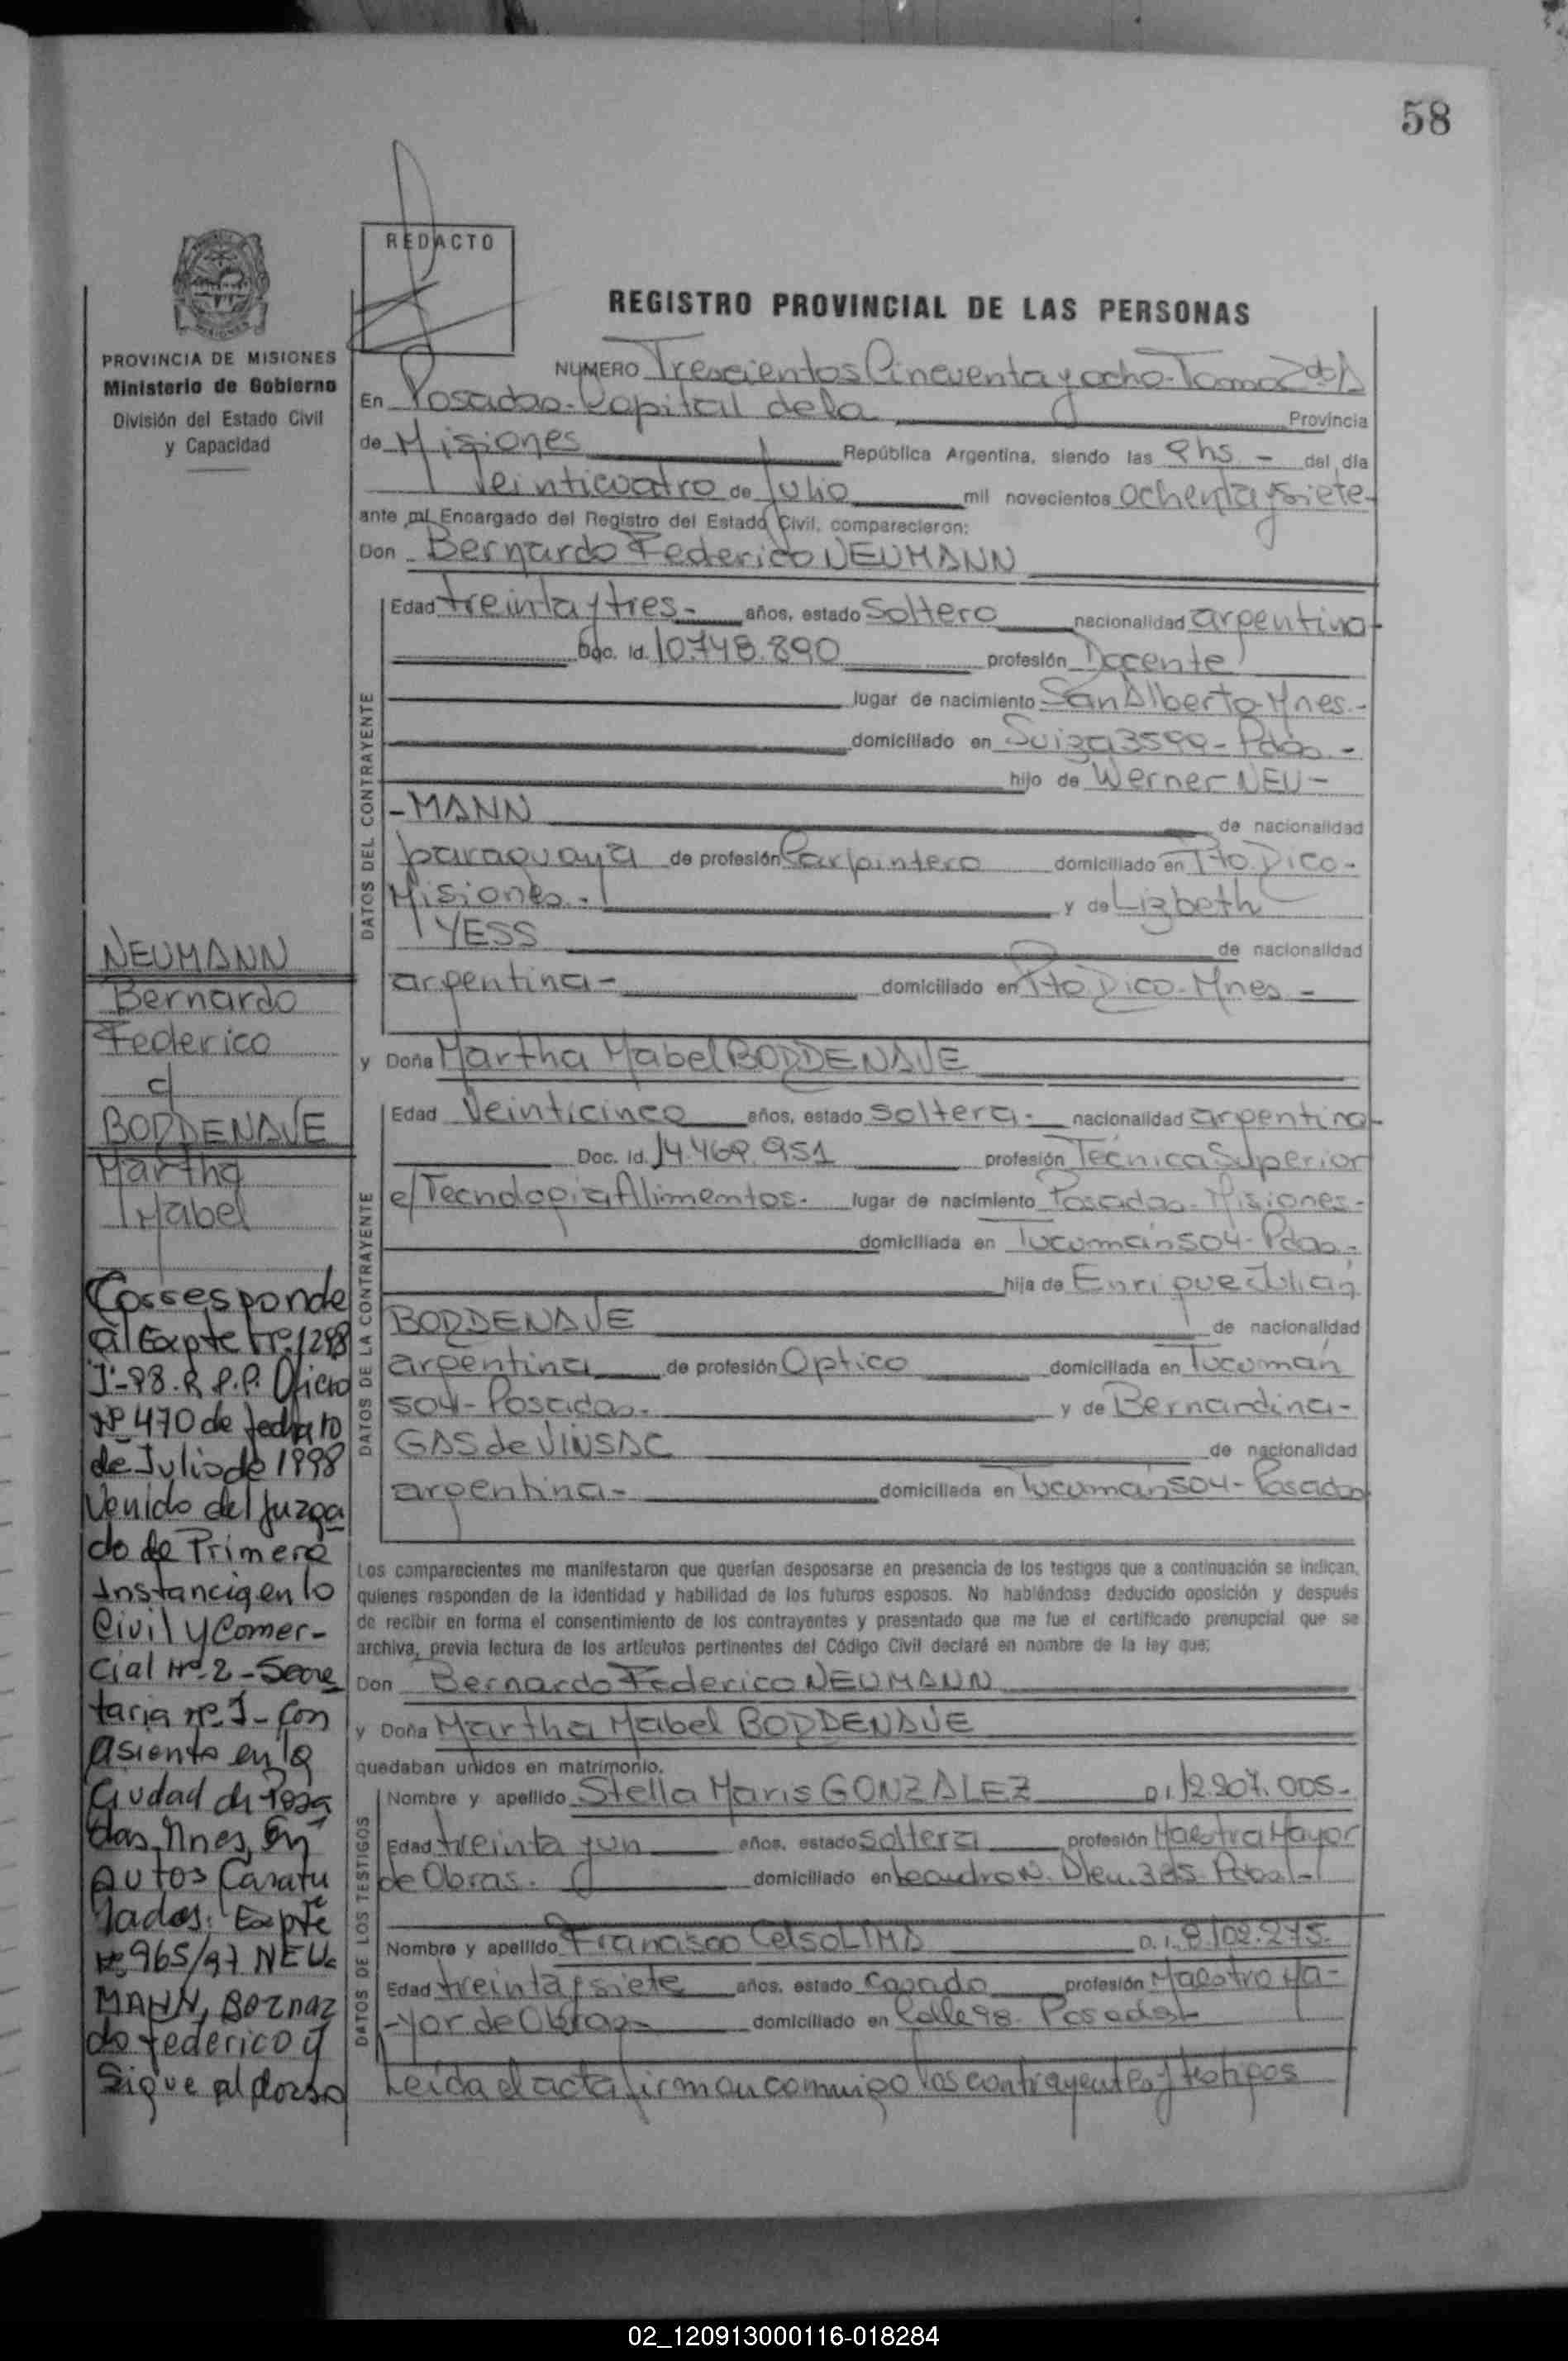 58
REDACTO
PROVINCIA DE MISIONES
Ministerio de Gobierno
División del Estado Civil
y Capacidad
REGISTRO PROVINCIAL DE LAS PERSONAS
NUMERO Trescientos Cincuenta y ocho-Tomo 2do A
En Posadas-Capital de la Provincia
de Misiones República Argentina, siendo las 9hs - del día
Veinticuatro de Julio mil novecientos ochenta y siete-
ante mí Encargado del Registro del Estado Civil, comparecieron:
Don Bernardo Federico NEUMANN
DATOS DEL CONTRAYENTE
Edad treinta y tres- años, estado Soltero nacionalidad argentina
Doc. Id. 10.748.890 profesión Docente
lugar de nacimiento San Alberto-Mnes.-
domiciliado en Suiza 3599-Pdas.-
hijo de Werner NEU-
-MANN de nacionalidad
paraguaya de profesión Carpintero domiciliado en Pto. Rico-
Misiones.- y de Lizbeth
YESS de nacionalidad
argentina- domiciliado en Pto Rico-Mnes-
y Doña Martha Mabel BORDENAVE
DATOS DE LA CONTRAYENTE
Edad Veinticinco años, estado soltera- nacionalidad argentina-
Doc. Id. 14.469.951 profesión Técnica Superior
e/Tecnología Alimentos- lugar de nacimiento Posadas-Misiones-
domiciliada en Tucumán 504-Pdas-
hija de Enrique Julián
BORDENAVE de nacionalidad
argentina de profesión Optico domiciliada en Tucumán
504-Posadas- y de Bernardina-
GAS de VINSAC de nacionalidad
argentina- domiciliada en Tucumán 504-Posadas
Los comparecientes me manifestaron que querían desposarse en presencia de los testigos que a continuación se indican,
quienes responden de la identidad y habilidad de los futuros esposos. No habiéndose deducido oposición y después
de recibir en forma el consentimiento de los contrayentes y presentado que me fue el certificado prenupcial que se
archiva, previa lectura de los artículos pertinentes del Código Civil declaré en nombre de la ley que:
Don Bernardo Federico NEUMANN
y Doña Martha Mabel BORDENAVE
quedaban unidos en matrimonio.
DATOS DE LOS TESTIGOS
Nombre y apellido Stella Maris GONZALEZ D.I. 12.207.005-
Edad treinta y un años, estado soltera profesión Maestra Mayor
de Obras. domiciliado en Leandro N. Alem
Nombre y apellido Francisco Celso LIMA D.I. 8.102.275-
Edad treinta y siete años, estado casado profesión Maestro Ma-
-yor de Obras- domiciliado en Calle 98- Posadas
Leida el acta firman conmigo los contrayentes y testigos
NEUMANN
Bernardo
Federico
c/
BORDENAVE
Martha
Mabel
Corresponde
al Expte Nº 1298
"J"-98.R.P.P. Oficio
Nº 470 de fecha 10
de Julio de 1998
Venido del Juzga
do de Primera
Instancia en lo
Civil y Comer-
cial Nº 2-Secre
taria nº 1-Con
Asiento en la
Ciudad de Posa
das, Mnes, En
Autos Caratu
lados: Expte
Nº 965/97 NEU-
MANN, Bernar
do Federico y
Sigue al dorso
02_120913000116-018284